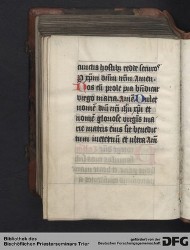 cunctis hostibus redde securos
p xpm dnm nrm Amen
Nos cu prole pia bndicat
virgo maria Ame Dulce
nomen dni nri ihu xpi et
nomen gloriose virginis ma
rie matris eius sit benedic
tum ineternu et ultra Ame
Bibliothek des
Bischöflichen Priesterseminars Trier
gefördert von der
Deutschen Forschungsgemeinschaft
DFG